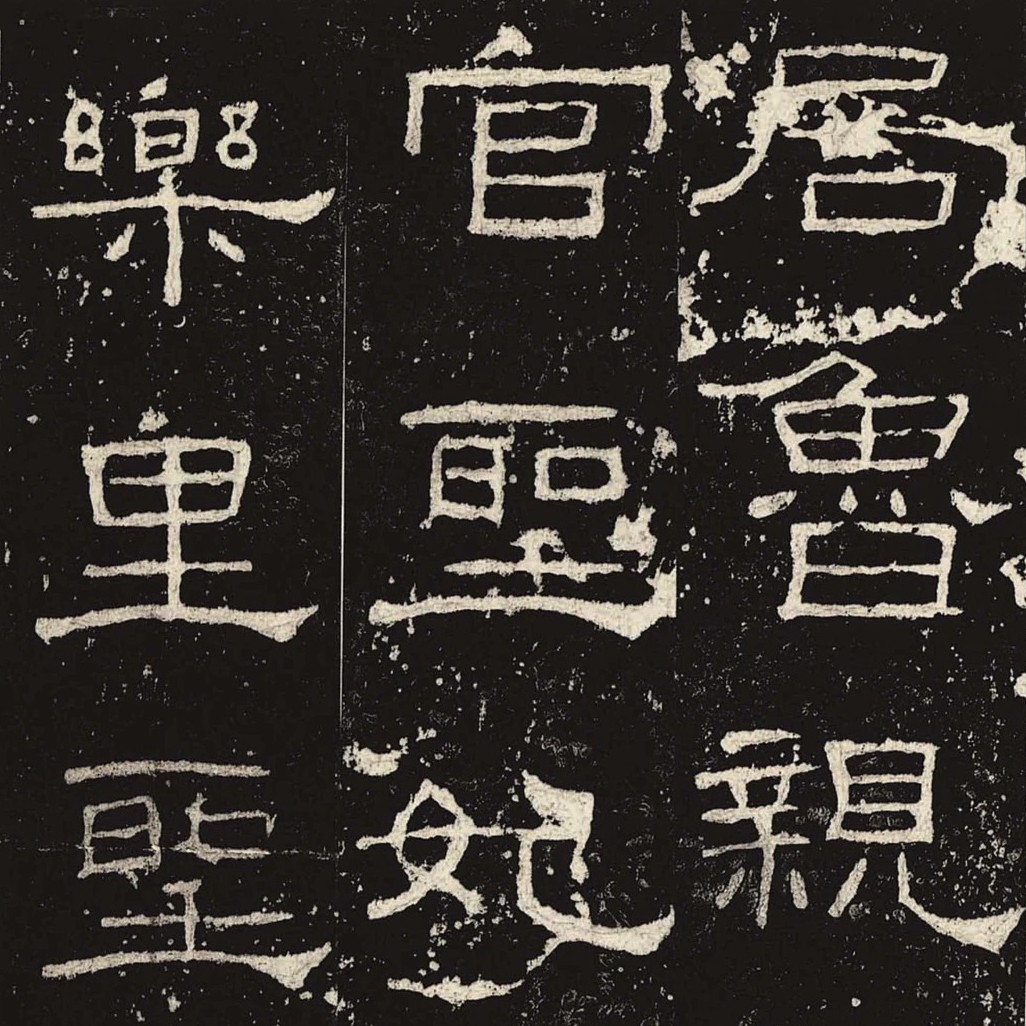 居魯親
官聖妃
樂里聖